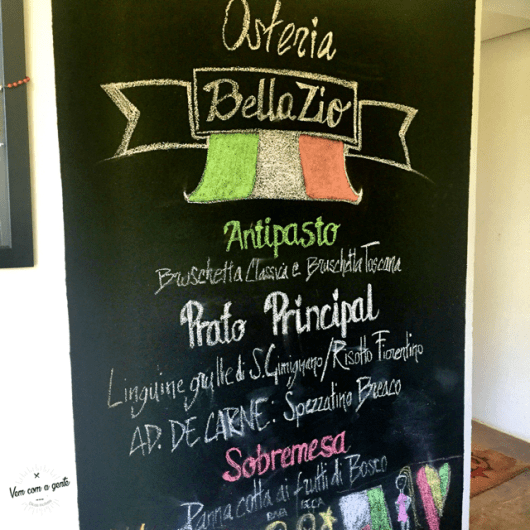 Osteria
BellaZio
Antipasto
Bruschetta Classica e Bruschetta Toscana
Prato Principal
Linguine grulle di S. Gimignano/Risotto Fiorentino
AD. DE CARNE: Spezzatino Bresco
Sobremesa
Panna cotta ai frutti di Bosco
Vem com a gente